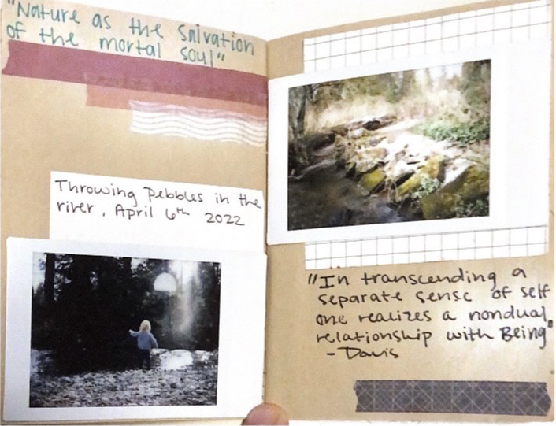 "Nature as the Salvation
of the mortal soul"
Throwing Pebbles in the
river, April 6th 2022
"In transcending a
separate sense of self
one realizes a nondual
relationship with Being"
- Davis